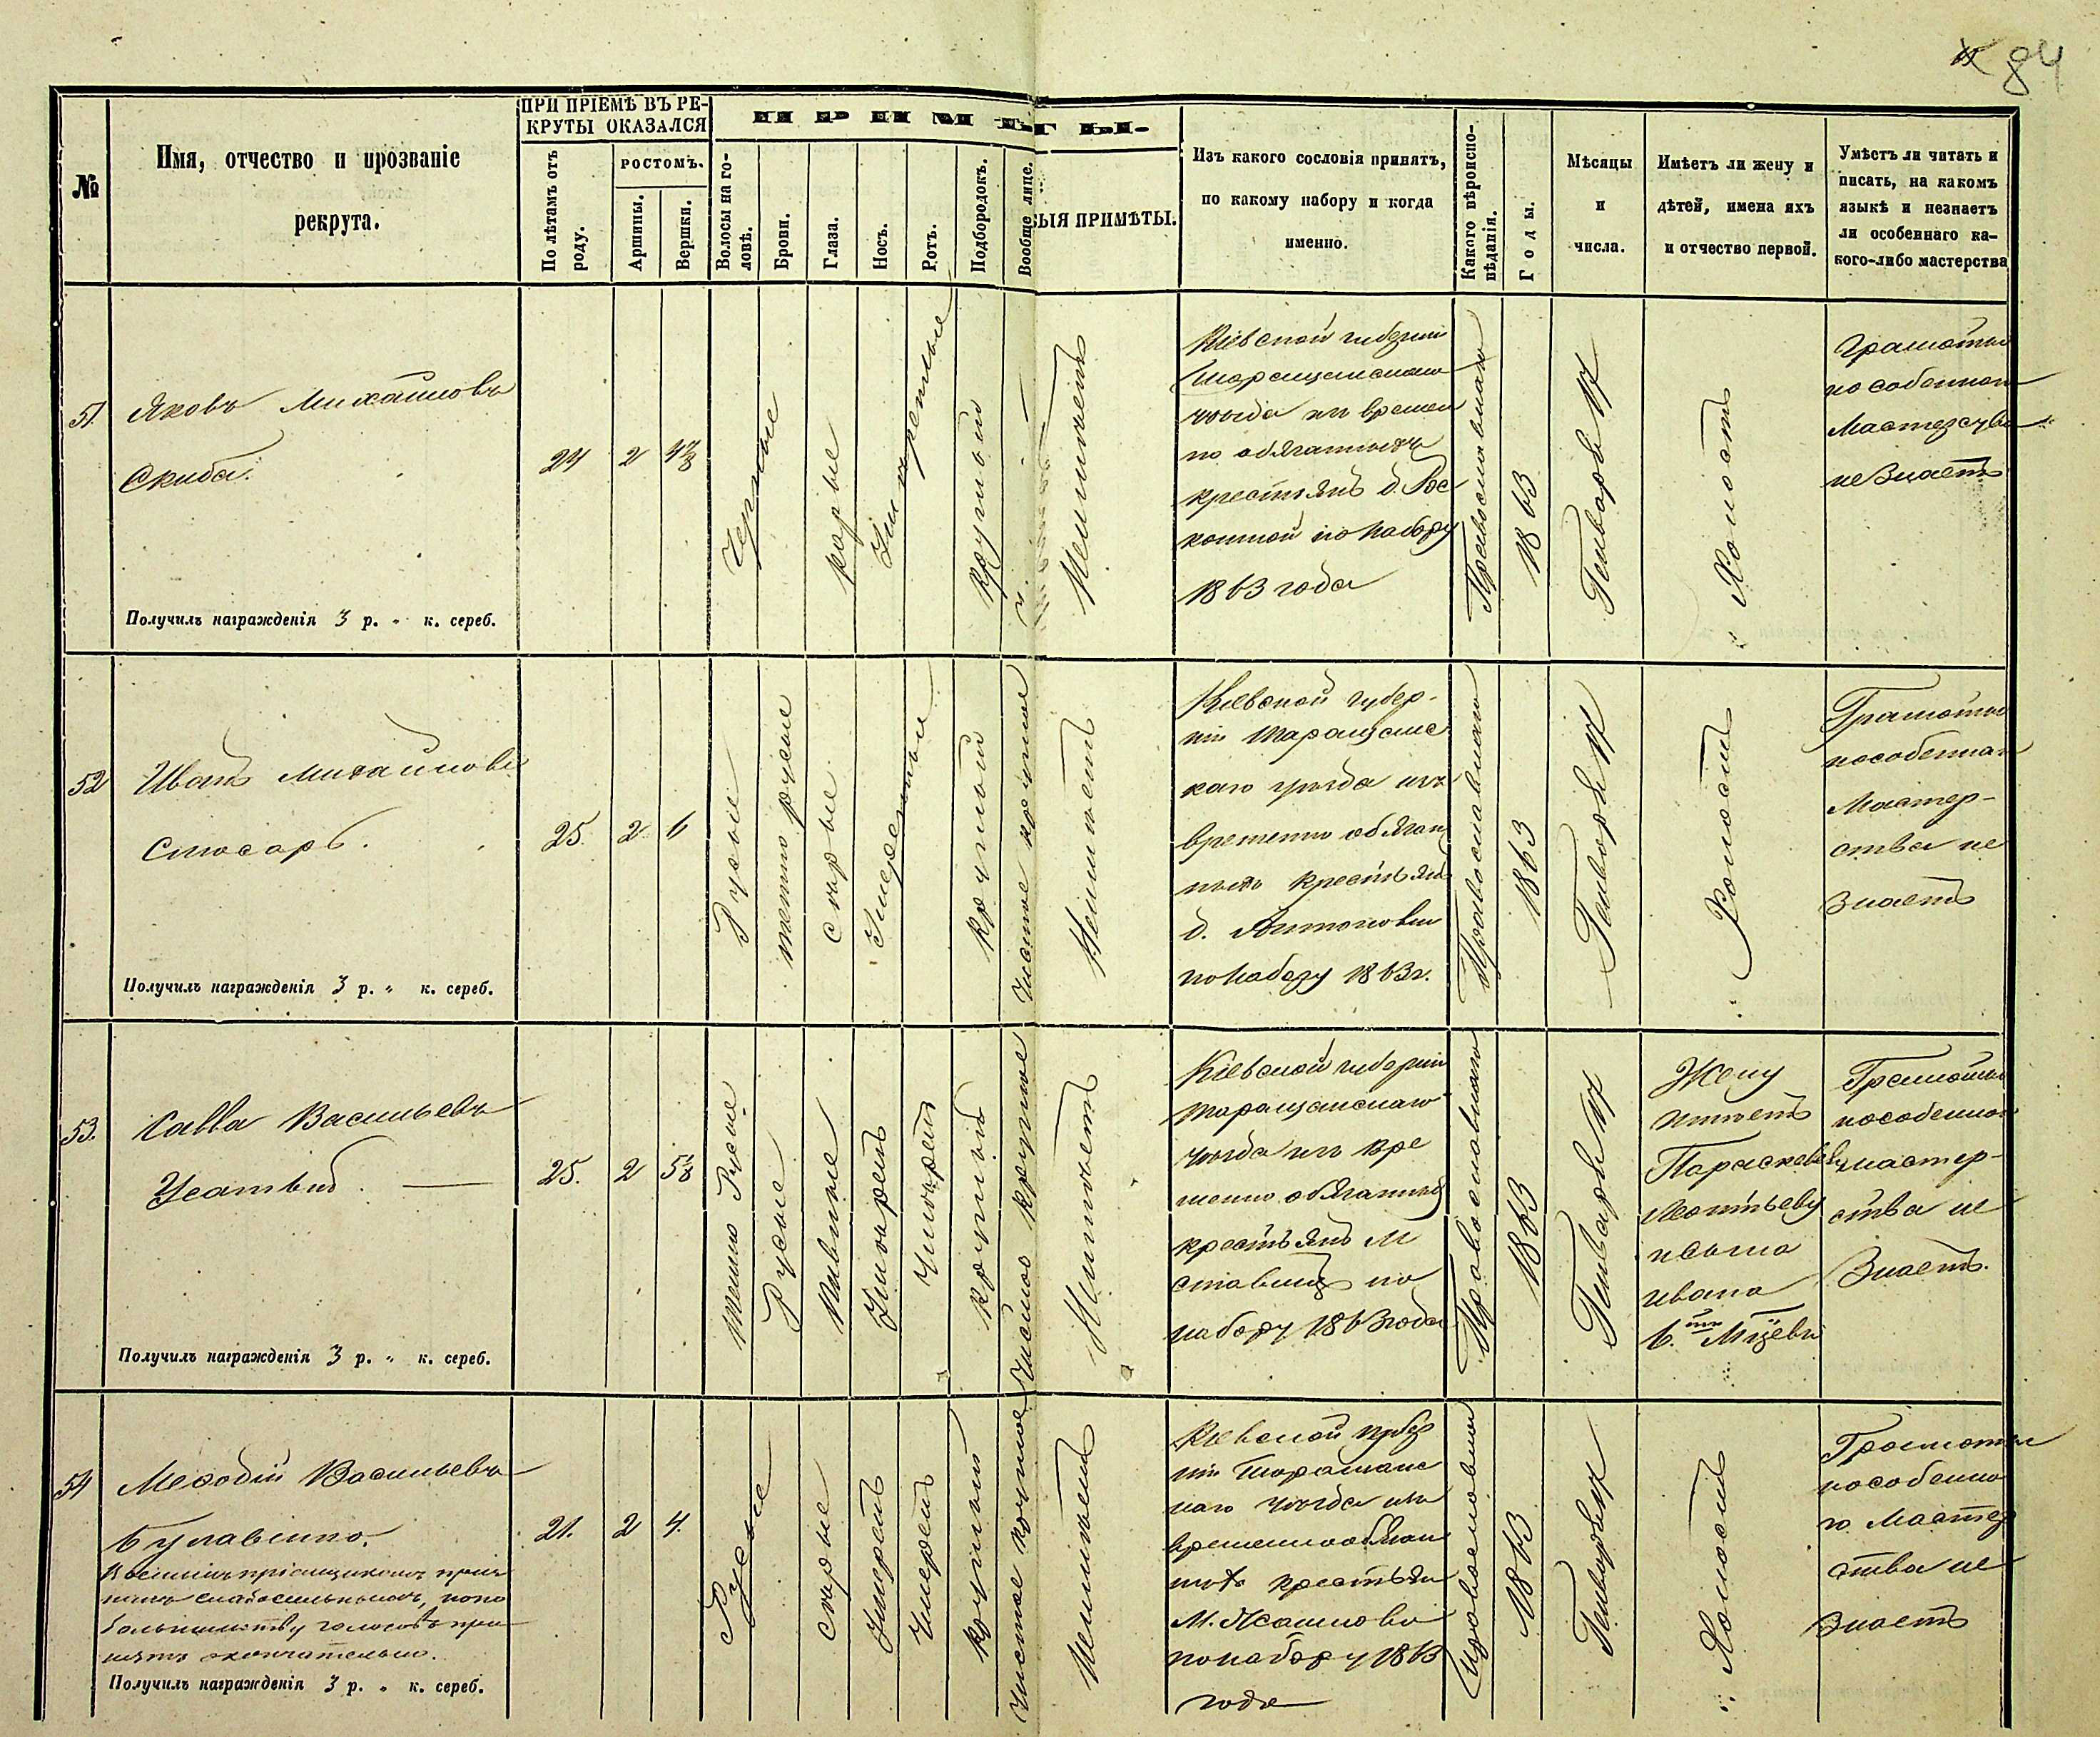 84
№
Имя, отчество и прозваніе
рекрута.
ПРИ ПРІЕМѢ ВЪ РЕ-
КРУТЫ ОКАЗАЛСЯ
По лѣтамъ отъ
роду.
ростомъ.
Аршины.
Вершки.
ПРИМѢТЫ.
Волосы на го-
ловѣ.
Брови.
Глаза.
Носъ.
Ротъ.
Подбородокъ.
Вообще лице.
ЫЯ ПРИМѢТЫ.
Изъ какого сословія принятъ,
по какому набору и когда
именно.
Какого вѣроиспо-
вѣданія.
Годы.
Мѣсяцы
и
числа.
Имѣетъ ли жену и
дѣтей, имена ихъ
и отчество первой.
Умѣетъ ли читать и
писать, на какомъ
языкѣ и незнаетъ
ли особеннаго ка-
кого-либо мастерства
51.
Яковъ Михайловъ
Скиба.
Получилъ награжденія 3 р. " к. сереб.
24
2
4 7/8
Черные
карые
Умѣренные
круглый
Неимѣетъ
Кіевской губерніи
Таращанскаго
уѣзда изъ времен
но обязанныхъ
крестьянъ д. Рос
кошной по набору
1863 года
Православнаго
1863
Генваря 17
Холостъ
Грамоты
и особеннаго
Мастерства
не Знаетъ
52
Иванъ Михайловъ
Слюсарь.
Получилъ награжденія 3 р. " к. сереб.
25.
2
6
Русые
темно русые
сѣрые
Умеренные
круглый
Чистое круглое
Неимѣетъ
Кіевской губер-
ніи Таращанс
каго уѣзда изъ
временно обязан
ныхъ крестьянъ
д. Антоновки
по Набору 1863 г.
Православнаго
1863
Генваря 17
Холостъ
Грамоты
и особеннаго
Мастер-
ства не
Знаетъ
53.
Савва Васильевъ
Получилъ награжденія 3 р. " к. сереб.
25.
2
5 1/8
Темно Русые
Русые
Пивные
Умѣрен
Умѣрен
круглый
Чистое круглое
Неимѣетъ
Кіевской губерніи
Таращанскаго
уѣзда изъ вре
менно обязанныхъ
крестьянъ М
Ставищъ по
набору 1863 года
Православнаго
1863
Генваря 17
Жену
имѣетъ
Параскеву
Леонтьеву
и сына
Ивана
6. ти Мѣсевъ
Грамоты
и особеннаго
мастер-
ства не
Знаетъ.
54
Мефодій Васильевъ
Булавенко.
Военнымъ пріемщикомъ приз
нанъ слабосильнымъ, но по
большинству голосовъ при
нятъ окончательно.
Получилъ награжденія 3 р. " к. сереб.
21.
2
4.
Русые
сѣрые
Умерен
Умерен
круглый
Чистое круглое
Неимѣетъ
Кіевской губер
ніи Таращанс
каго уѣзда изъ
временнообязан
ныхъ крестьян
по набору 1863
года
Православнаго
1863
Генваря 17
Холостъ
Грамоты
и особенна
го Мастер
ства не
Знаетъ